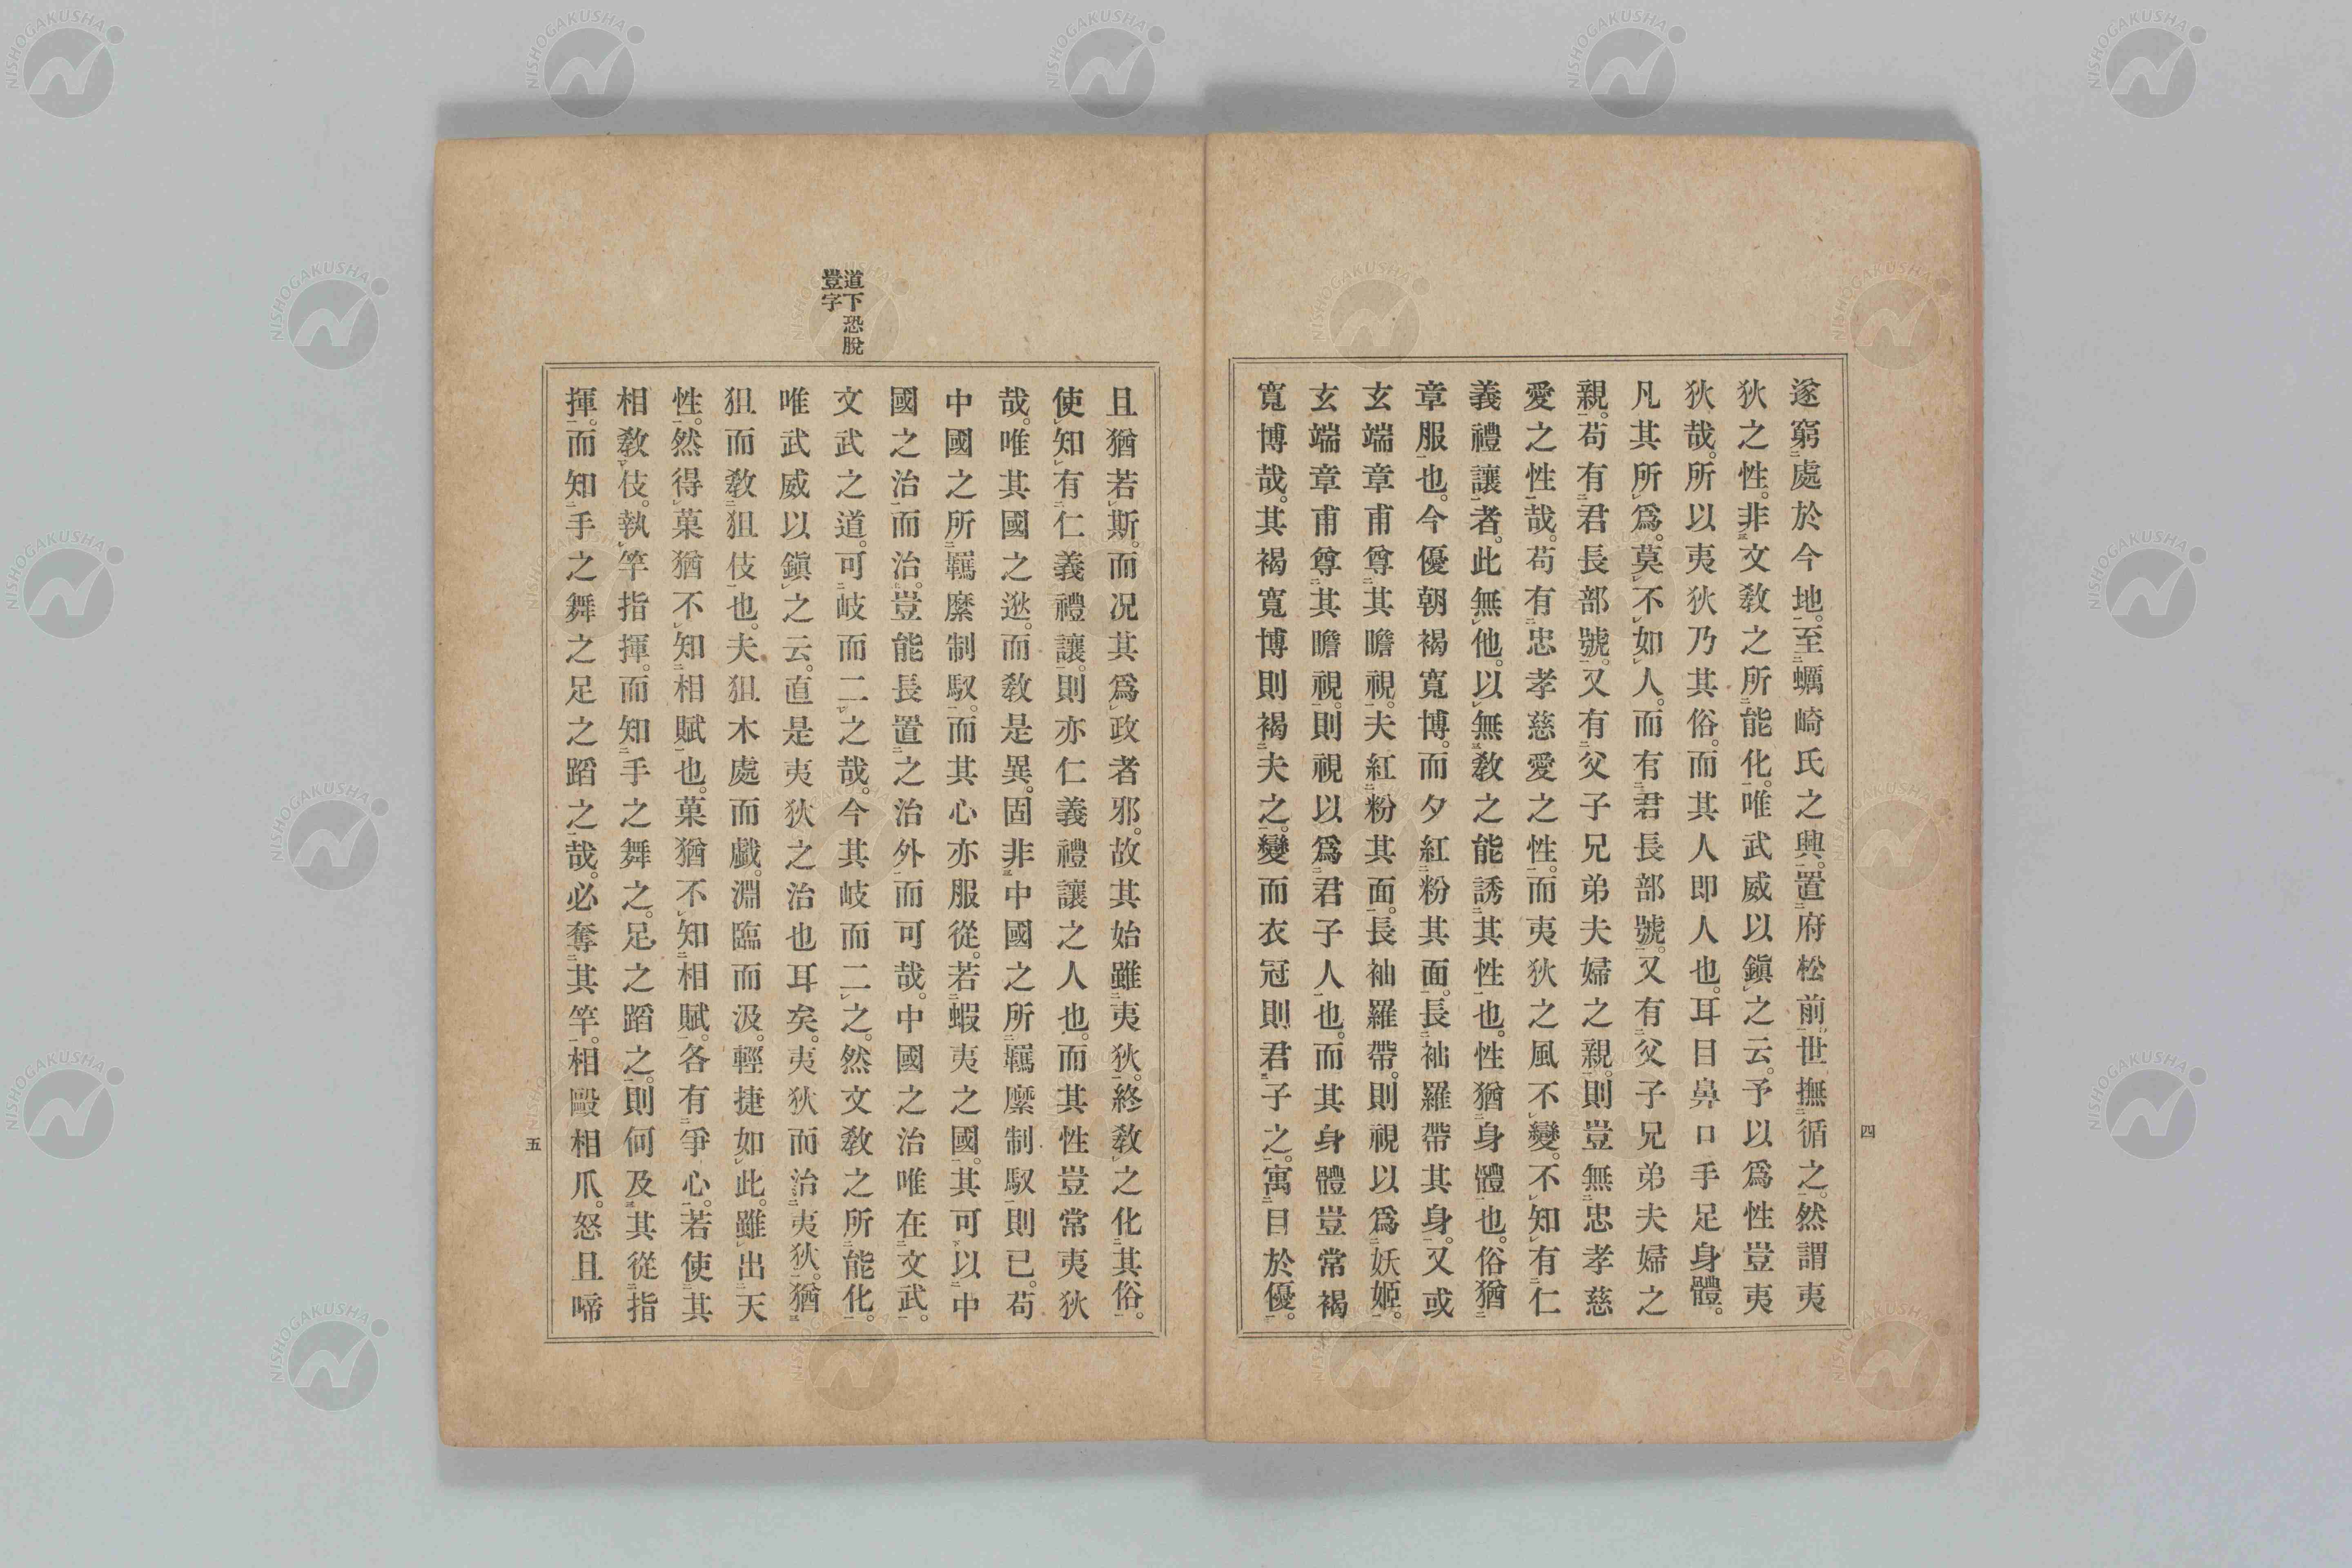 遂窮處於今地。至蠣崎氏之興。置府松前。世撫循之。然謂夷
狄之性。非文敎之所能化。唯武威以鎭之云。予以爲性豈夷
狄哉。所以夷狄乃其俗。而其人即人也。耳目鼻口手足身體。
凡其所爲。莫不如人。而有君長部號。又有父子兄弟夫婦之
親。苟有君長部號。又有父子兄弟夫婦之親。則豈無忠孝慈
愛之性哉。苟有忠孝慈愛之性。而夷狄之風不變。不知有仁
義禮讓者。此無他。以無敎之能誘其性也。性猶身體也。俗猶
章服也。今優朝褐寬博。而夕紅粉其面。長袖羅帶其身。又或
玄端章甫尊其瞻視。夫紅粉其面。長袖羅帶。則視以爲妖姬。
玄端章甫尊其瞻視。則視以爲君子人也。而其身體豈常褐
寬博哉。其褐寬博則褐夫之。變而衣冠則君子之。寓目於優。
四
且猶若斯。而况其爲政者邪。故其始雖夷狄。終敎之化其俗。
使知有仁義禮讓。則亦仁義禮讓之人也。而其性豈常夷狄
哉。唯其國之逖。而敎是異。固非中國之所羈縻制馭則已。苟
中國之所羈縻制馭。而其心亦服從。若蝦夷之國。其可以中
國之治而治。豈能長置之治外而可哉。中國之治唯在文武。
文武之道。可岐而二之哉。今其岐而二之。然文敎之所能化。
唯武威以鎭之云。直是夷狄之治也耳矣。夷狄而治夷狄。猶
狙而敎狙伎也。夫狙木處而戲。淵臨而汲。輕捷如此。雖出天
性。然得菓猶不知相賦也。菓猶不知相賦。各有爭心。若使其
相敎伎。執竿指揮。而知手之舞之。足之蹈之。則何及其從指
揮。而知手之舞之足之蹈之哉。必奪其竿。相毆相爪。怒且啼
道下恐脫
豈字
五
NISHOGAKUSHA